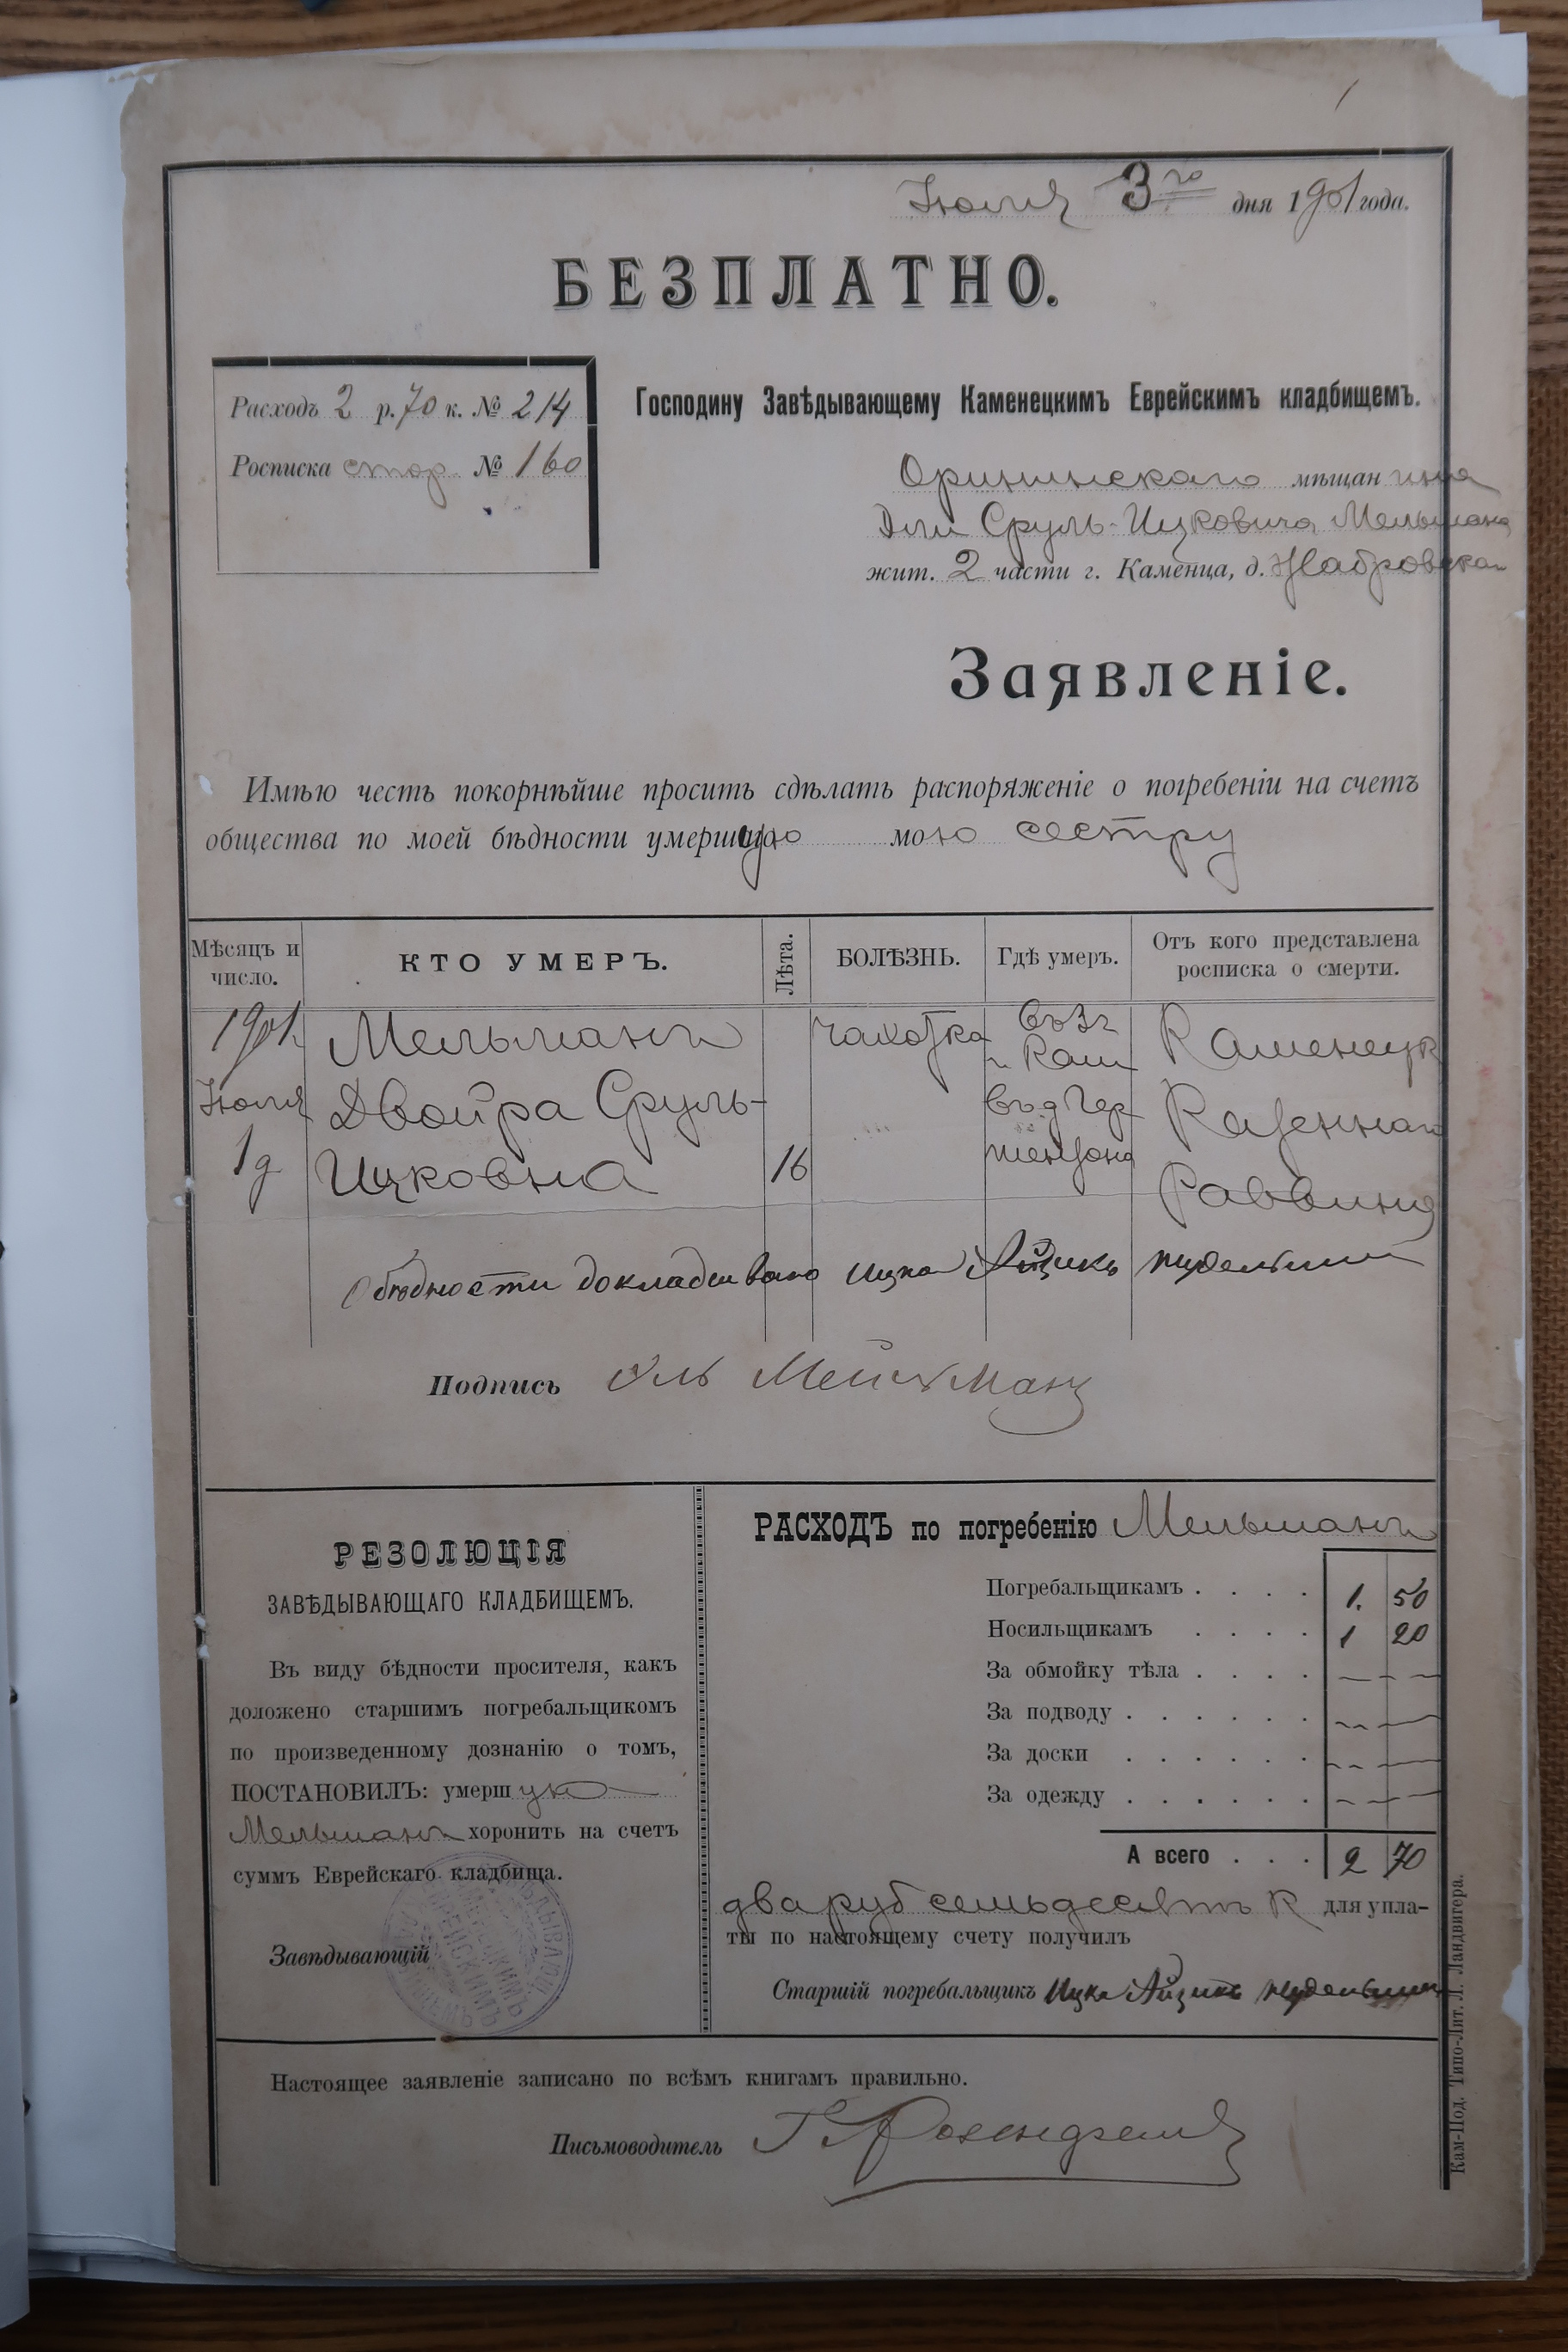 1
Іюля 3го дня 1901 года.
БЕЗПЛАТНО.
Расходъ 2 р. 70 к. № 214
Росписка стор. № 160
Господину Завѣдывающему Каменецкимъ Еврейскимъ кладбищемъ.
Орининскаго мѣщанина
Эли Сруль-Ицковича Мельмана
жит. 2 части г. Каменца, д.
Заявленіе.
Имѣю честь покорнѣйше просить сдѣлать распоряженіе о погребеніи на счетъ
общества по моей бѣдности умершую мою сестру
Мѣсяцъ и число.
КТО УМЕРЪ.
Лѣта.
БОЛѢЗНЬ.
Гдѣ умеръ.
Отъ кого представлена росписка о смерти.
1901. Мельманъ чахотка Каменецк
Іюля Двойра Сруль- въ д. Гер Казеннаго
1 д Ицковна 16 шензона Раввина
О бѣдности докладывано Ицко Айзикъ
Подпись Эль Мейлманъ
РЕЗОЛЮЦІЯ
ЗАВѢДЫВАЮЩАГО КЛАДБИЩЕМЪ.
Въ виду бѣдности просителя, какъ
доложено старшимъ погребальщикомъ
по произведенному дознанію о томъ,
ПОСТАНОВИЛЪ: умершую
Мельманъ хоронить на счетъ
суммъ Еврейскаго кладбища.
Завѣдывающій
РАСХОДЪ по погребенію Мельманъ
Погребальщикамъ . . . . 1. 50
Носильщикамъ . . . . 1 20
За обмойку тѣла . . . . — —
За подводу . . . . . . — —
За доски . . . . . . — —
За одежду . . . . . . — —
А всего . . . 2 70
два руб семьдесятъ к для упла-
ты по настоящему счету получилъ
Старшій погребальщикъ Ицко Айзикъ
Настоящее заявленіе записано по всѣмъ книгамъ правильно.
Письмоводитель
Кам-Под. Типо-Лит. Л. Ландвигера.